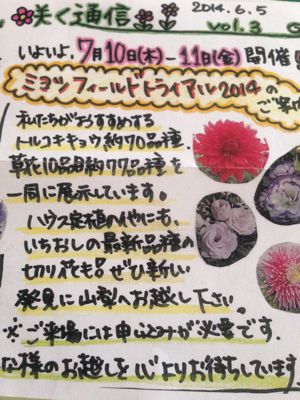 咲く通信
2014.6.5
vol.3
いよいよ、7月10日(木)-11日(金)開催
ミヨシフィールドトライアル2014の
ご案
私たちがおすすめする
トルコキキョウ約70品種、
草花10品目約77品種を
一同に展示しています。
ハウス定植の他にも、
いちおしの最新品種の
切り花も!ぜひ新しい
発見に山梨へお越し下さい。
※ご来場には申し込みが必要です。
な様のお越しを心よりお待ちしています